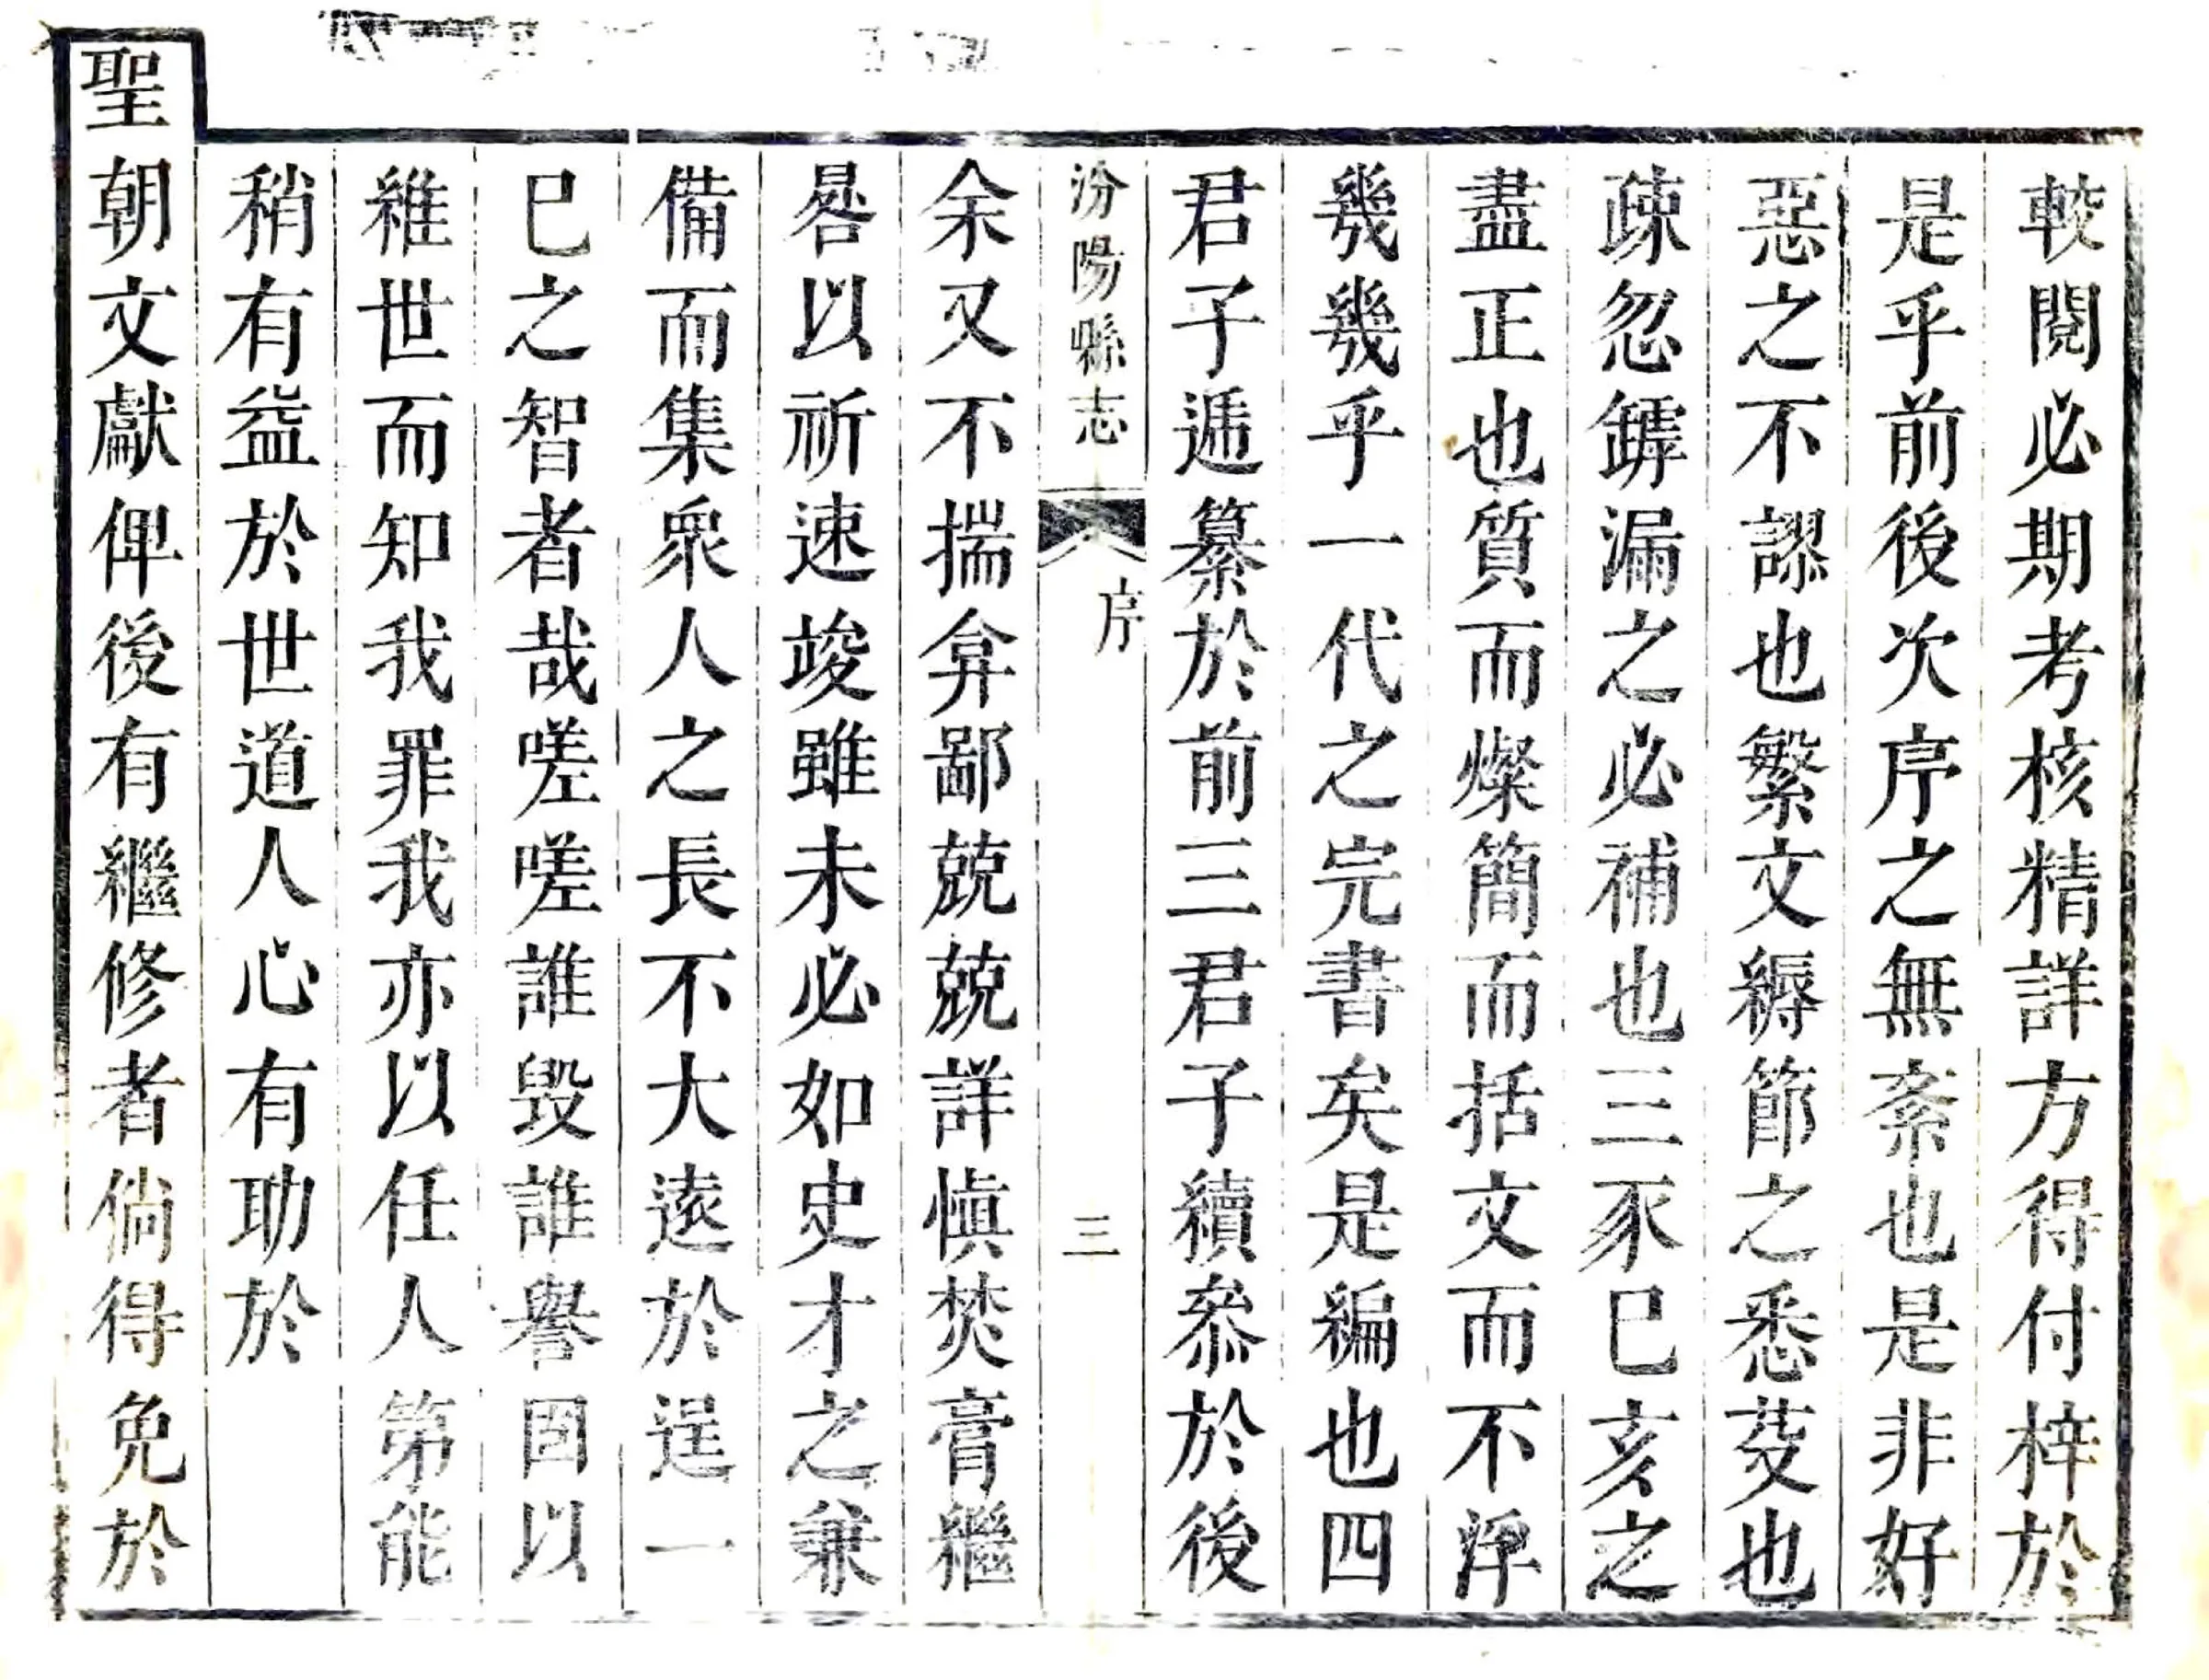 較閱必期考核精詳方得付梓於
是乎前後次序之無紊也是非好
惡之不謬也繁文縟節之悉芟也
疎忽罅漏之必補也三豕巳亥之
盡正也質而燦簡而括文而不浮
幾幾乎一代之完書矣是編也四
君子遞纂於前三君子續叅於後
汾陽縣志
序
三
余又不揣弇鄙兢兢詳慎焚膏繼
晷以祈速竣雖未必如史才之兼
備而集衆人之長不大逺於逞一
巳之智者哉嗟嗟誰毀誰譽固以
維世而知我罪我亦以任人第能
稍有益於世道人心有助於
聖朝文獻俾後有繼修者倘得免於